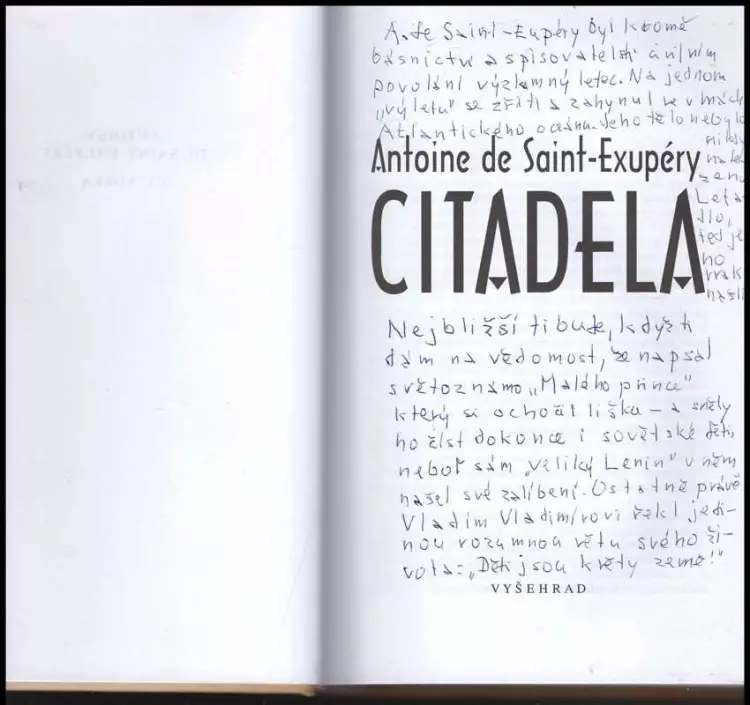 A. de Saint-Exupéry byl kromě
básnictví a spisovatelství civilním
povolání významný letec. Na jednom
„výletu" se zřítil a zahynul ve vlnách
Atlantického oceánu. Jeho tělo nebylo
nikdy
Antoine de Saint-Exupéry
zeno
CITADELA
Leta-
dlo,
teď je
ho
vrak
našli
Nejbližší ti bude, když ti
dám na vědomost, že napsal
světoznámo „Malého prince"
který si ochočil lišku – a směly
ho číst dokonce i sovětské děti,
neboť sám „veliký Lenin" v něm
našel své zalíbení. Ostatně právě
Vladim Vladimírovi řekl jedi-
nou rozumnou větu svého ži-
vota: „Děti jsou květy země!"
VYŠEHRAD